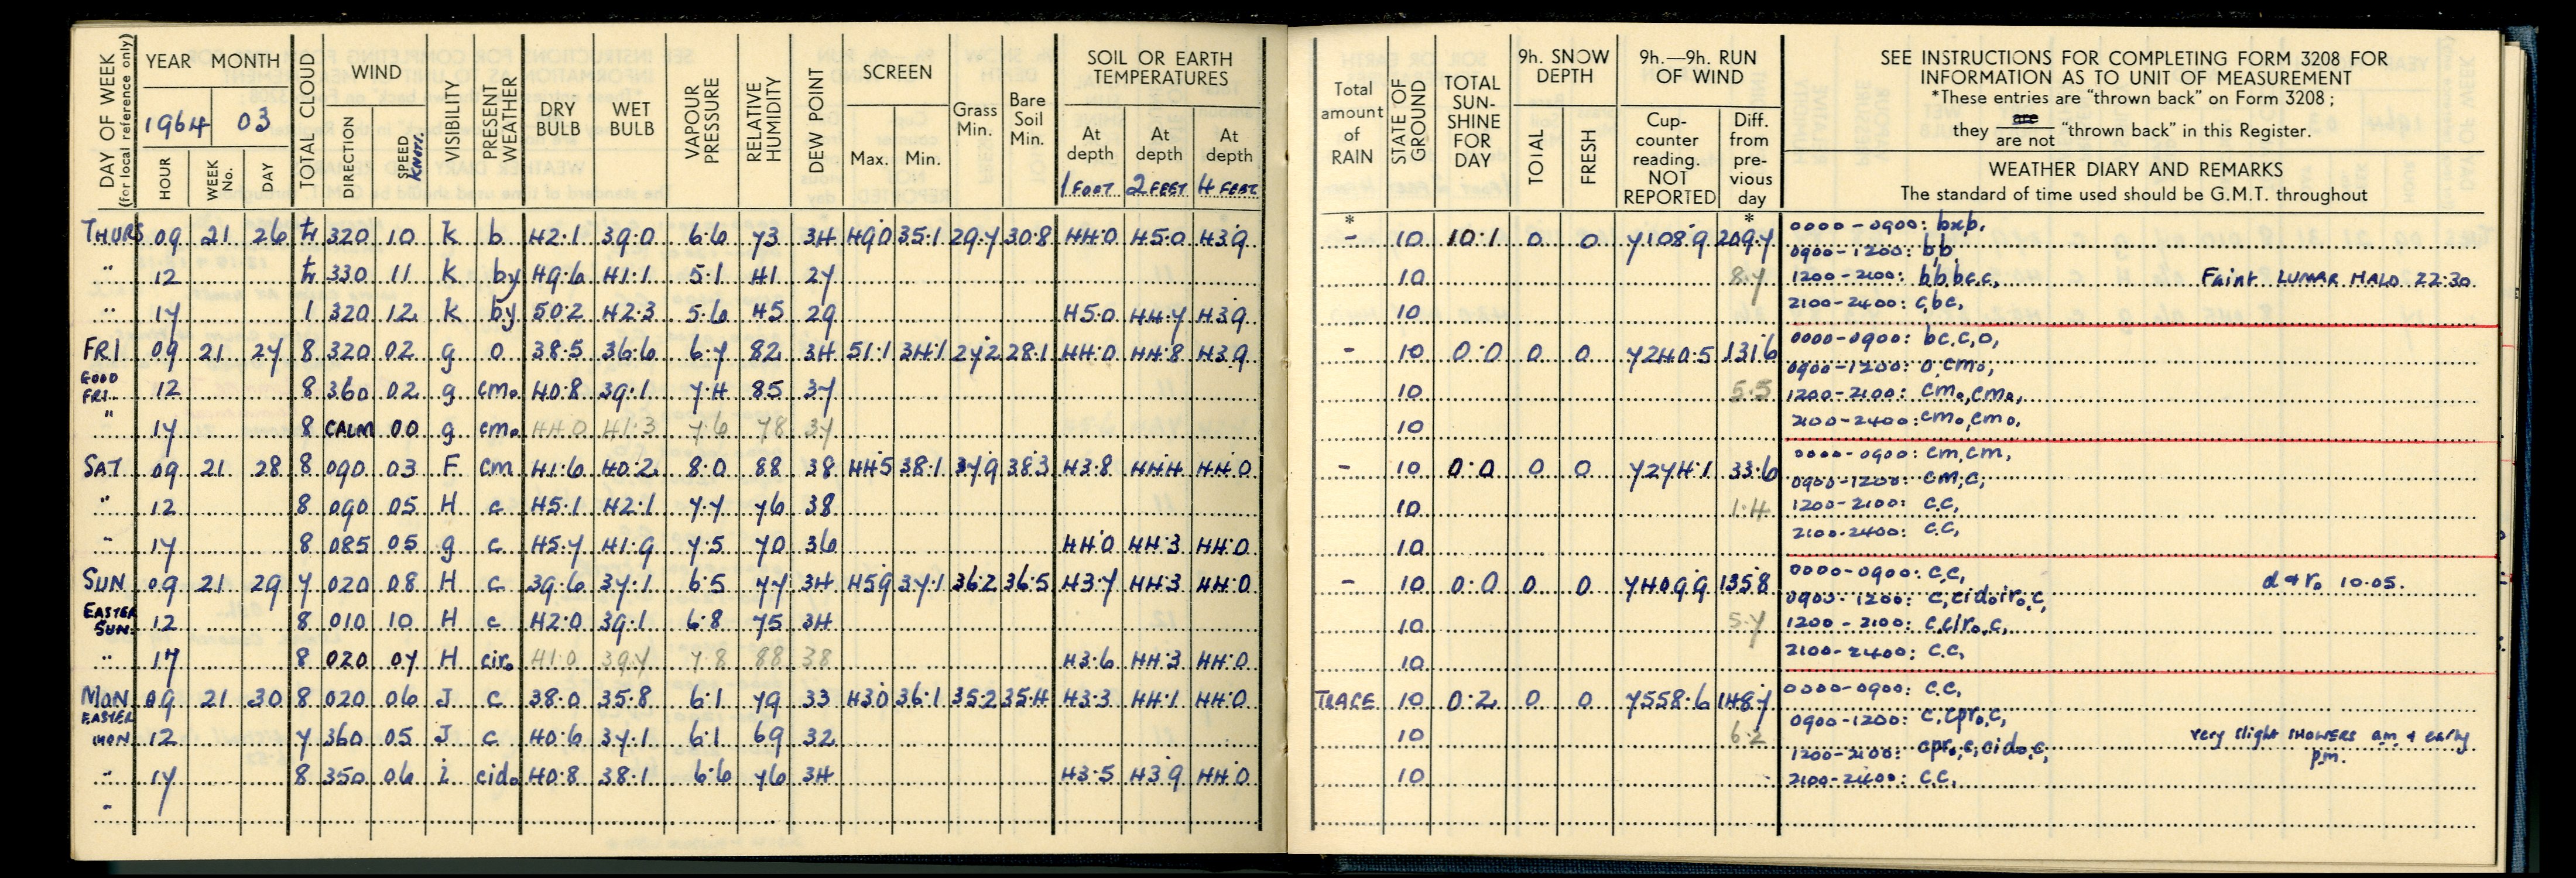 DAY OF WEEK (for local reference only) YEAR MONTH TOTAL CLOUD WIND VISIBILITY PRESENT WEATHER DRY BULB WET BULB VAPOUR PRESSURE RELATIVE HUMIDITY DEW POINT SCREEN Grass Min. Bare Soil Min. SOIL OR EARTH TEMPERATURES
1964 03
HOUR WEEK No. DAY DIRECTION SPEED KNOTS. Max. Min. At depth 1 FOOT At depth 2 FEET At depth 4 FEET
THURS 09 21 26 tr 320 10 k b 42.1 39.0 6.6 73 34 49.0 35.1 29.7 30.8 44.0 45.0 43.9
" 12 tr 330 11 k by 49.6 41.1 5.1 41 27
" 17 1 320 12 k by 50.2 42.3 5.6 45 29 45.0 44.7 43.9
FRI 09 21 27 8 320 02 g o 38.5 36.6 6.7 82 34 51.1 34.1 27.2 28.1 44.0 44.8 43.9
GOOD FRI. 12 8 360 02 g cmo 40.8 39.1 7.4 85 37
" 17 8 CALM 00 g cmo 44.0 41.3 7.6 78 37
SAT 09 21 28 8 090 03 F cm 41.6 40.2 8.0 88 38 44.5 38.1 37.9 38.3 43.8 44.4 44.0
" 12 8 090 05 H c 45.1 42.1 7.7 76 38
" 17 8 085 05 g c 45.7 41.9 7.5 70 36 44.0 44.3 44.0
SUN 09 21 29 7 020 08 H c 39.6 37.1 6.5 77 34 45.9 37.1 36.2 36.5 43.7 44.3 44.0
EASTER SUN. 12 8 010 10 H c 42.0 39.1 6.8 75 34
" 17 8 020 07 H ciro 41.0 39.7 7.8 88 38 43.6 44.3 44.0
MON 09 21 30 8 020 06 J c 38.0 35.8 6.1 79 33 43.0 36.1 35.2 35.4 43.3 44.1 44.0
EASTER MON 12 7 360 05 J c 40.6 37.1 6.1 69 32
" 17 8 350 06 i cido 40.8 38.1 6.6 76 34 43.5 43.9 44.0
"
Total amount of RAIN STATE OF GROUND TOTAL SUN-SHINE FOR DAY 9h. SNOW DEPTH 9h.—9h. RUN OF WIND
TOTAL FRESH Cup-counter reading. NOT REPORTED Diff. from pre-vious day
SEE INSTRUCTIONS FOR COMPLETING FORM 3208 FOR
INFORMATION AS TO UNIT OF MEASUREMENT
*These entries are "thrown back" on Form 3208;
they are / are not "thrown back" in this Register.
WEATHER DIARY AND REMARKS
The standard of time used should be G.M.T. throughout
* *
- 10 10.1 0 0 7108.9 209.7 0000-0900: bxb,
0900-1200: b,b,
10 8.7 1200-2100: b,b,bc,c, Faint LUNAR HALO 22:30
10 2100-2400: c,bc,
- 10 0.0 0 0 7240.5 131.6 0000-0900: bc,c,o,
0900-1200: o,cmo,
10 5.5 1200-2100: cmo,cmo,
10 2100-2400: cmo,cmo,
- 10 0.0 0 0 7274.1 33.6 0000-0900: cm,cm,
0900-1200: cm,c,
10 1.4 1200-2100: c,c,
10 2100-2400: c,c,
- 10 0.0 0 0 7409.9 135.8 0000-0900: c,c, d & ro 10.05.
0900-1200: c,cidoiro,c,
10 5.7 1200-2100: c,c/ro,c,
10 2100-2400: c,c,
TRACE 10 0.2 0 0 7558.6 148.7 0000-0900: c,c,
0900-1200: c,cpro,c,
10 6.2 1200-2100: cpro,c,cido,c, very slight SHOWERS am & early pm.
10 2100-2400: c,c,